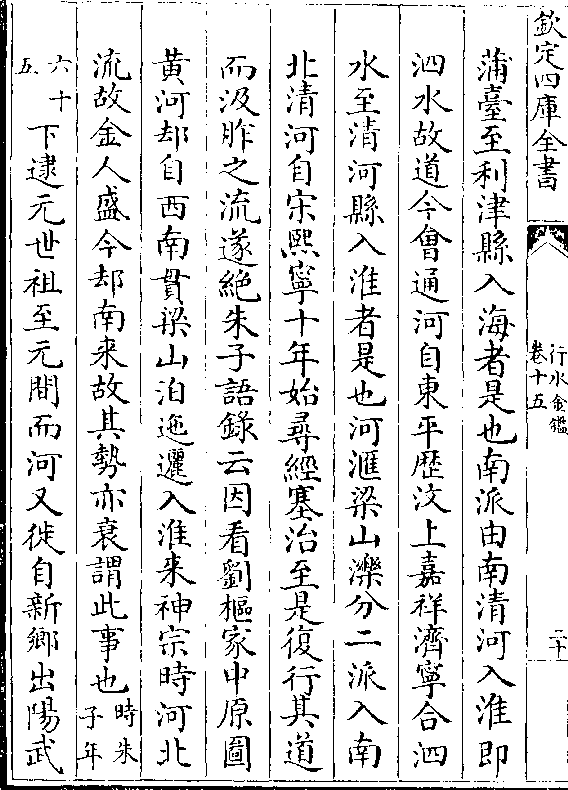 欽定四庫全書
行水金鑑
卷十五
二十
蒲臺至利津縣入海者是也南派由南清河入淮即
泗水故道今會通河自東平歴汶上嘉祥濟寧合泗
水至清河縣入淮者是也河滙梁山濼分二派入南
北清河自宋熙寧十年始尋經塞治至是復行其道
而汲胙之流遂絶朱子語錄云因看劉樞家中原圖
黃河却自西南貫梁山泊迤邐入淮来神宗時河北
流故金人盛今却南来故其勢亦衰謂此事也時朱子年
六十五下逮元世祖至元間而河又徙自新鄉出陽武